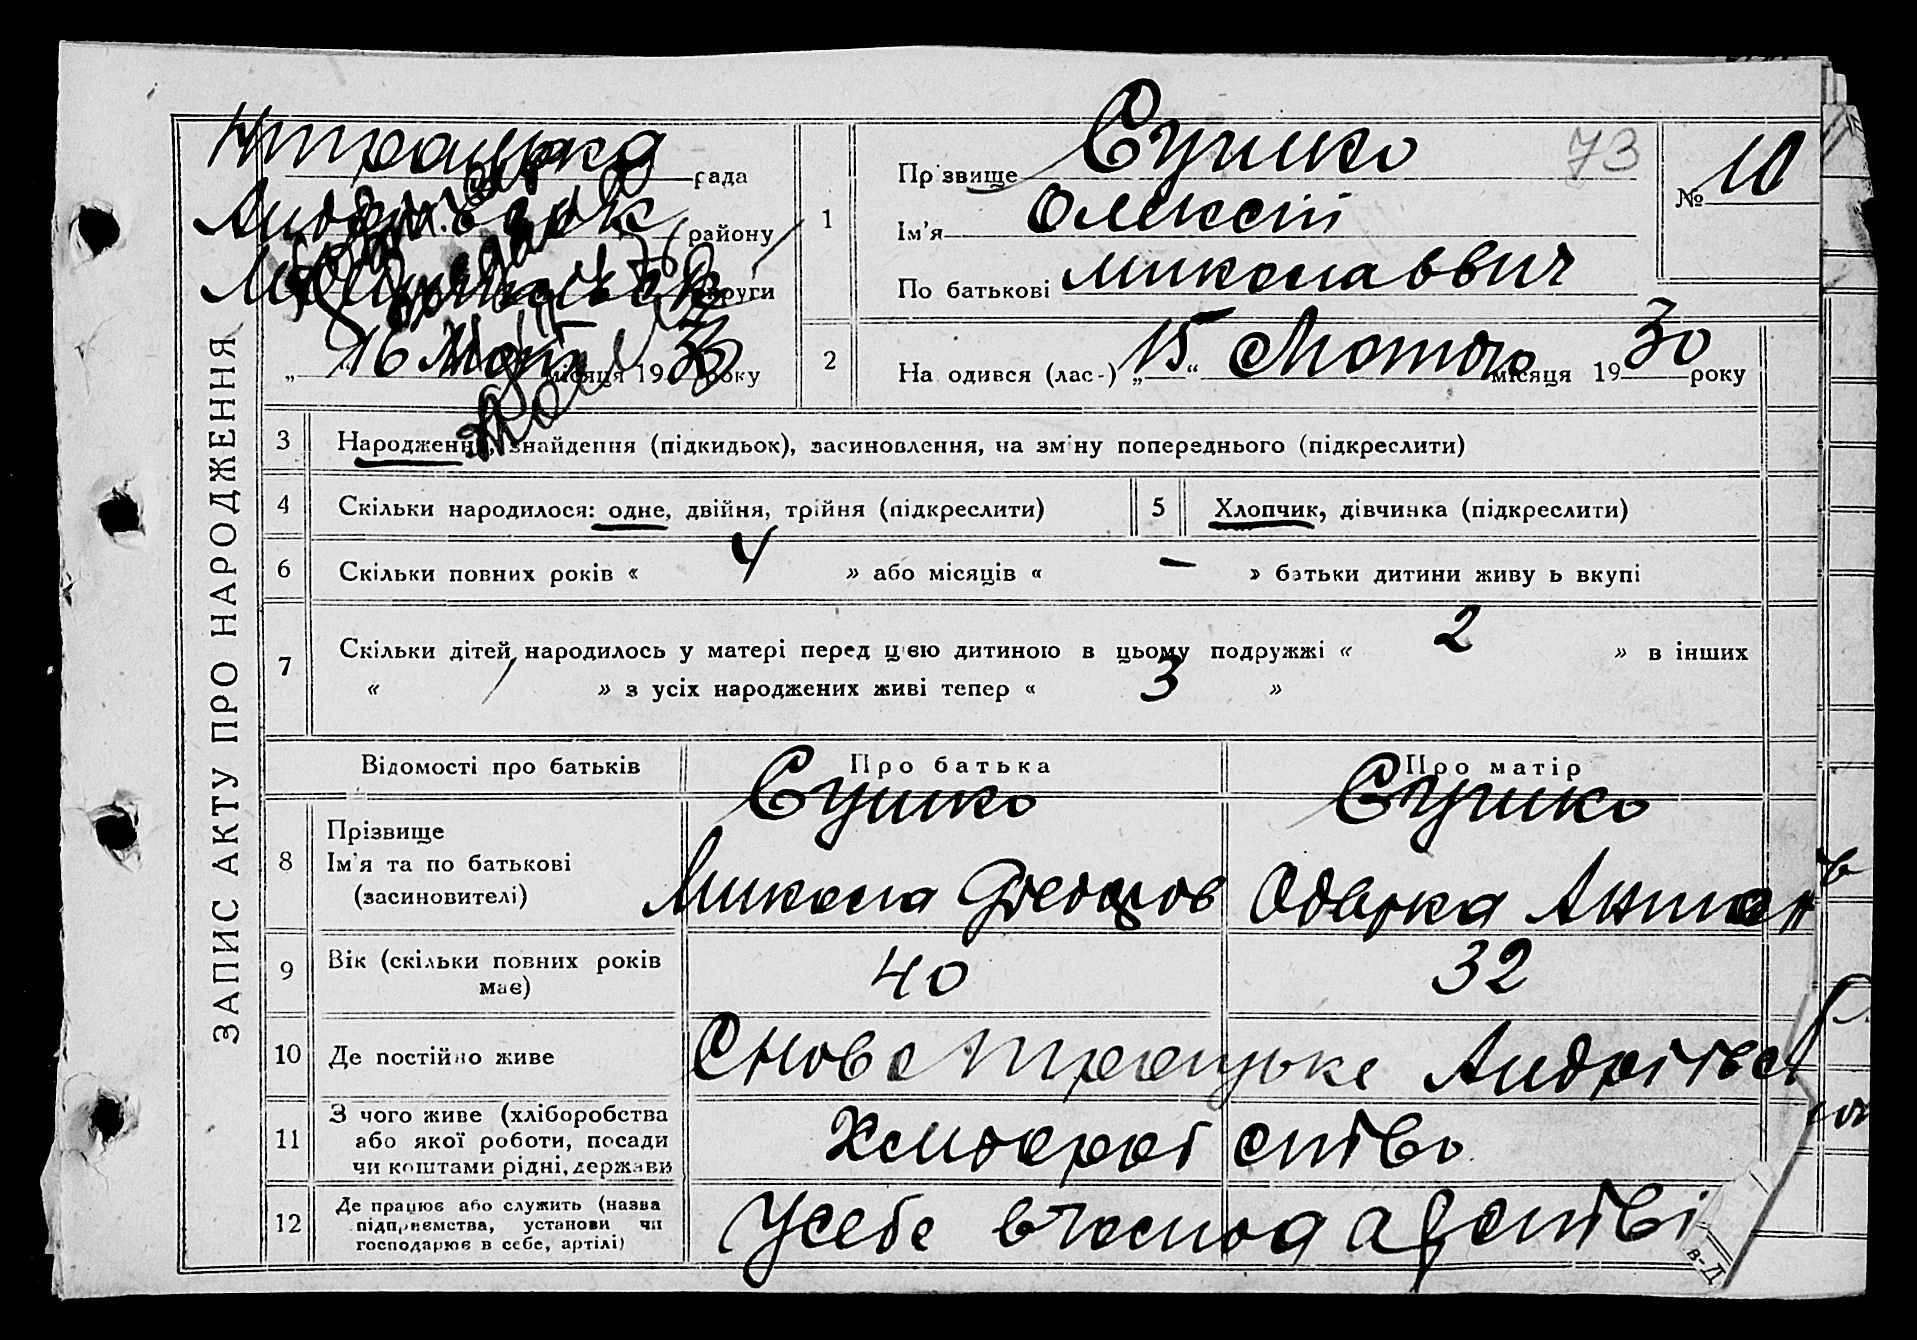 ЗАПИС АКТУ ПРО НАРОДЖЕННЯ
рада
району
округи
16 місяця 19 року
1 Прізвище Сушко 73
Ім'я Олексій
По батькові миколаввич
№ 10
2 На одився (лас-) „15“ Лютого місяця 1930 року
3 Народження, знайдення (підкидьок), засиновлення, на зміну попереднього (підкреслити)
4 Скільки народилося: одне, двійня, трійня (підкреслити) 5 Хлопчик, дівчинка (підкреслити)
6 Скільки повних років « 4 » або місяців « – » батьки дитини живу ь вкупі
7 Скільки дітей народилось у матері перед цією дитиною в цьому подружжі « 2 » в інших
« / » з усіх народжених живі тепер « 3 »
Відомості про батьків Про батька Про матір
8 Прізвище Сушко Сушко
Ім'я та по батькові Микола Федоров Одарка Антонов
(засиновителі)
9 Вік (скільки повних років має) 40 32
10 Де постійно живе
11 З чого живе (хліборобства або якої роботи, посади чи коштами рідні, держави
12 Де працює або служить (назва підприємства, установи чи господарює в себе, артілі) Усебе
в-Д